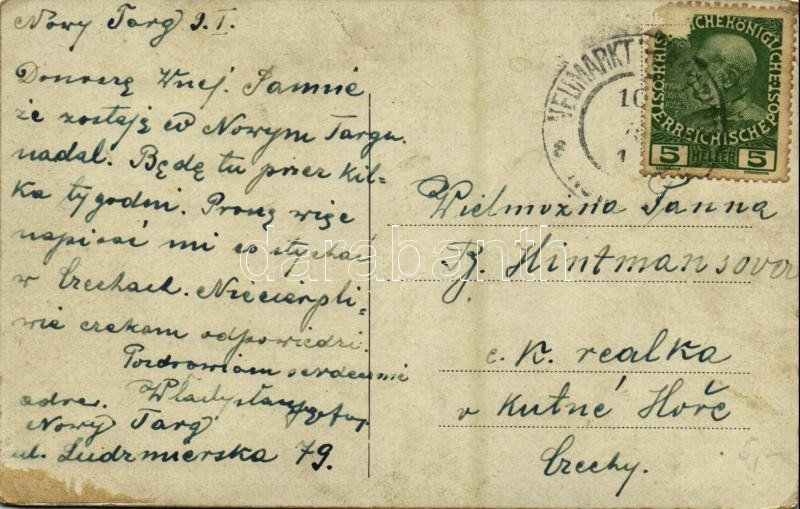 Nowy Targ 9. I.
Donoszę Wnej. Pannie
że zostaję w Nowym Targu
nadal. Będę tu przez kil-
ka tygodni. Proszę więc
napisać mi co słychać
w Czechach. Niecierpli-
wie czekam odpowiedzi.
Pozdrawiam serdecznie
adres. Władysław
Nowy Targ
ul. Ludzmierska 79.
NEUMARKT
10
KAIS. KÖNIGLICHE
ÖSTERREICHISCHE POST
1908
5 HELLER 5
Wielmożna Panna
B. Hintmansova
c. k. realka
v Kutné Hoře
Czechy.
5,-
darabanth